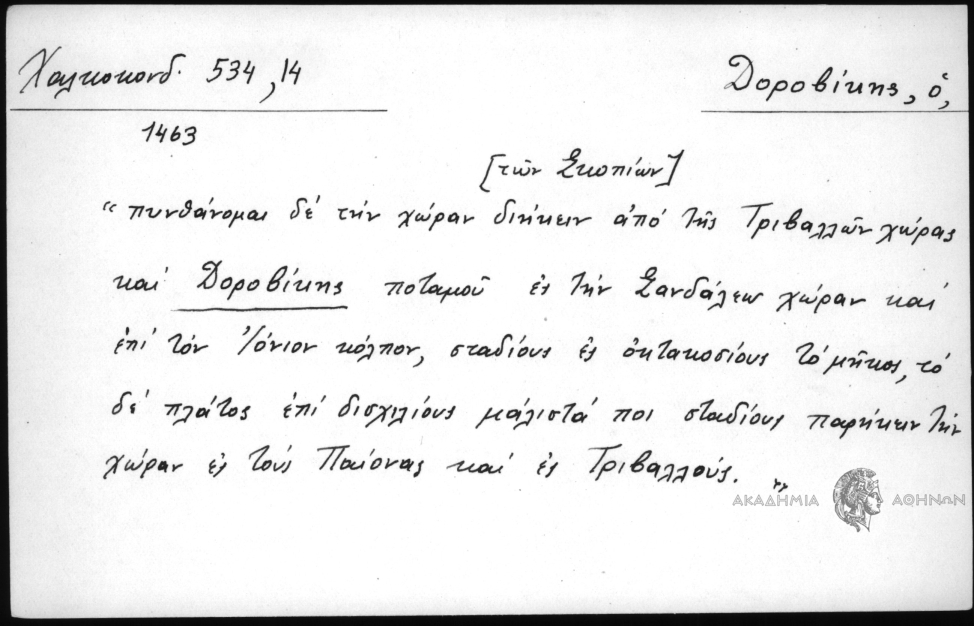 Χαλκοκονδ. 534,14
Δοροβίκης, ὁ,
1463
[τῶν Σκοπίων]
“ πυνθάνομαι δέ τήν χώραν διήκειν ἀπό τῆς Τριβαλλῶν χώρας
καί Δοροβίκης ποταμοῦ ἐς τήν Σανδάλεω χώραν καί
ἐπί τόν Ἰόνιον κόλπον, σταδίους ἐς ὀκτακοσίους τό μῆκος, τό
δέ πλάτος ἐπί δισχιλίους μάλιστά ποι σταδίους παρήκειν τήν
χώραν ἐς τούς Παίονας καί ἐς Τριβαλλούς. ”
ΑΚΑΔΗΜΙΑ ΑΘΗΝΩΝ